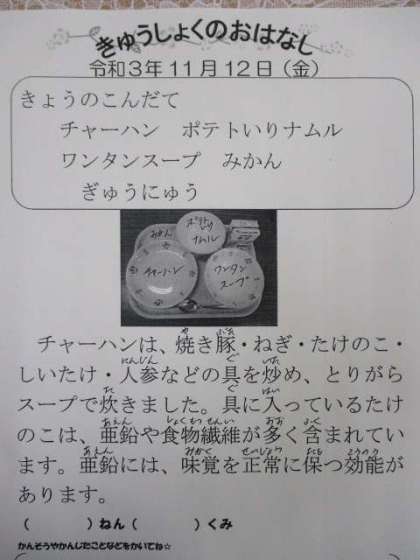 きゅうしょくのおはなし
令和3年11月12日(金)
きょうのこんだて
チャーハン　ポテトいりナムル
ワンタンスープ　みかん
ぎゅうにゅう
みかん
ポテト
いり
ナムル
チャーハン
ワンタン
スープ
チャーハンは、焼き豚・ねぎ・たけのこ・
しいたけ・人参などの具を炒め、とりがら
スープで炊きました。具に入っているたけ
のこは、亜鉛や食物繊維が多く含まれてい
ます。亜鉛には、味覚を正常に保つ効能が
あります。
(　　　)ねん(　　　)くみ
かんそうやかんじたことなどをかいてね☆